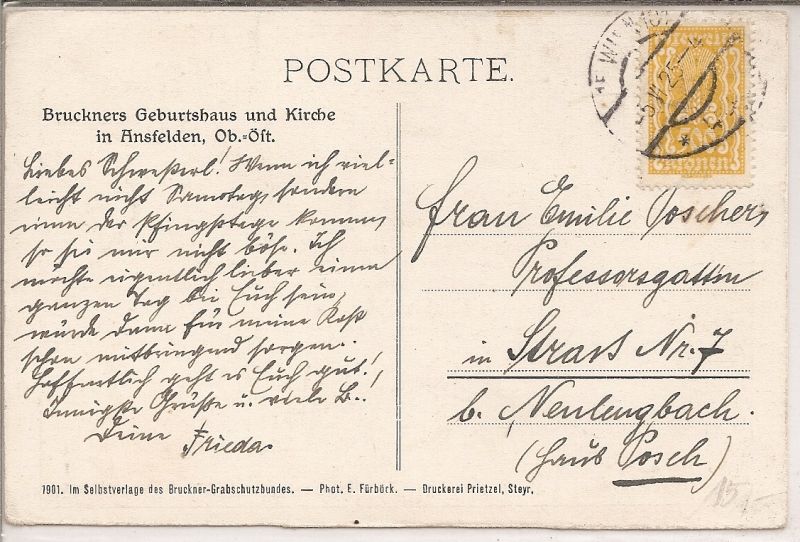 POSTKARTE.
Bruckners Geburtshaus und Kirche
in Ansfelden, Ob.-Öst.
Liebes Schwesterl! Wenn ich viel-
leicht nicht Samstag, sondern
einen der Pfingsttage komme,
so sei mir nicht böse. Ich
möchte eigentlich lieber einen
ganzen Tag bei Euch sein,
würde dann für meine Kost
schon mitbringend sorgen.
Hoffentlich geht es Euch gut!
Innigste Grüße u. viele B..
Deine Frieda.
WIEN 101
25
Kronen
Frau Emilie
Professorsgattin
in Strass Nr. 7
b. Neulengbach.
(Haus Posch)
15,-
7901. Im Selbstverlage des Bruckner-Grabschutzbundes. — Phot. E. Fürböck. — Druckerei Prietzel, Steyr.